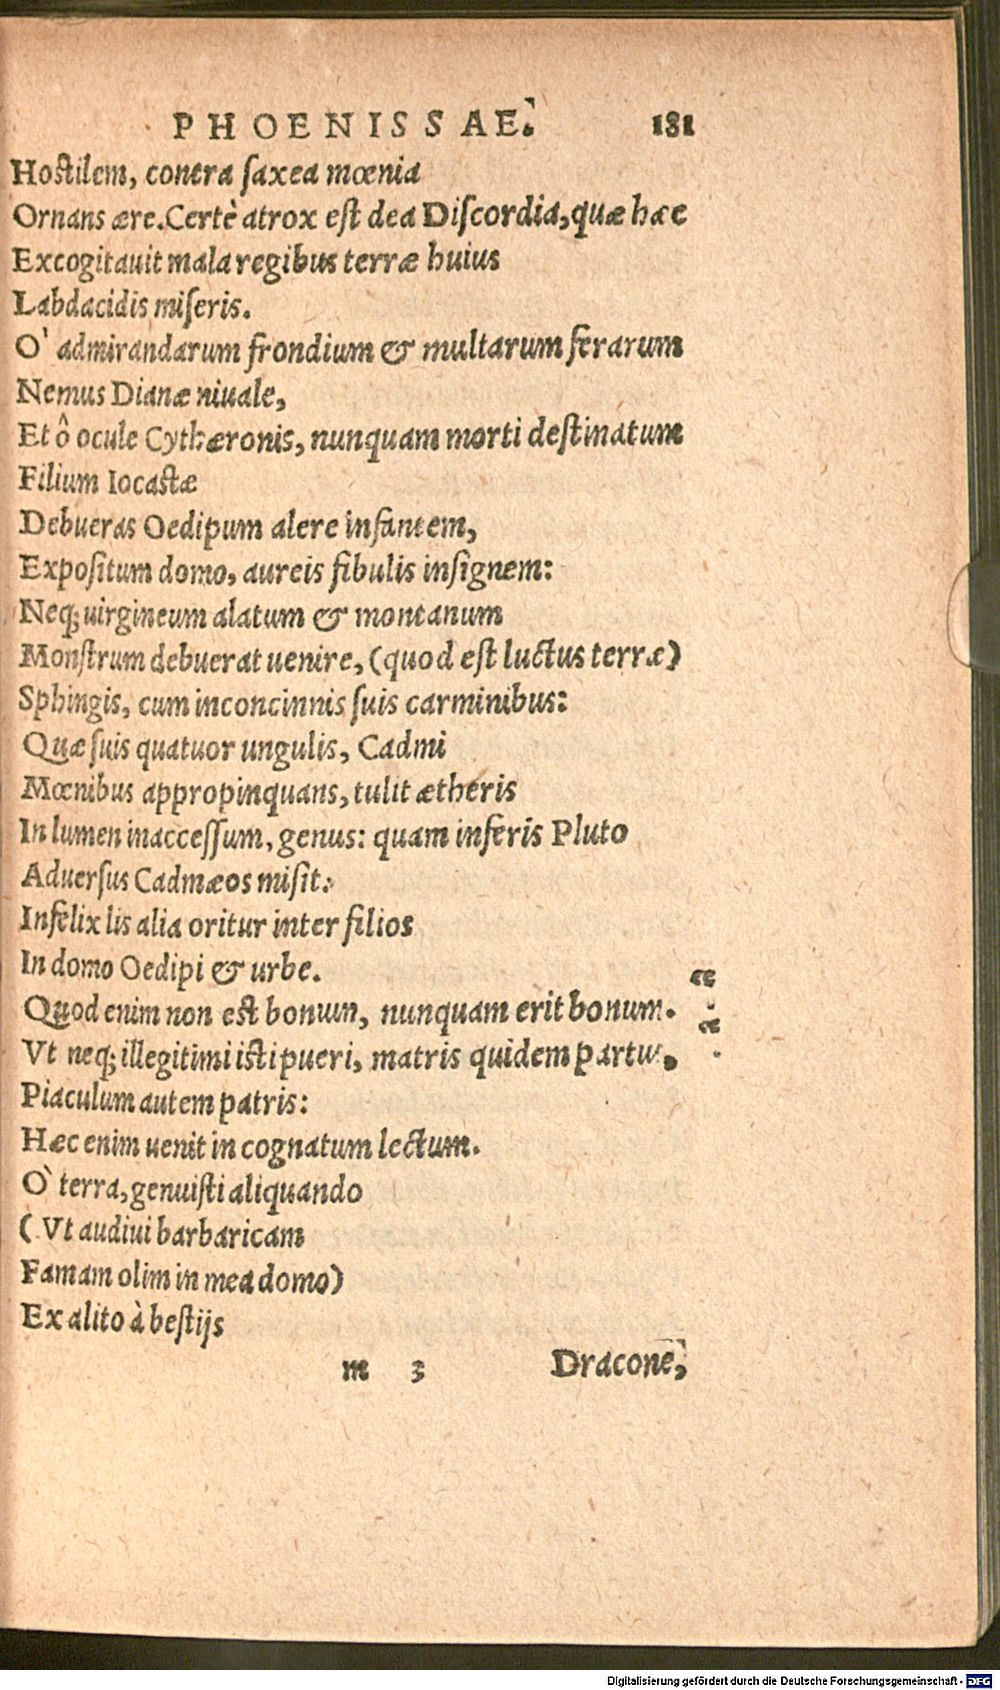 PHOENISSAE. 181
Hostilem, contra saxea mœnia
Ornans ære. Certè atrox est dea Discordia, quæ hæc
Excogitauit mala regibus terræ huius
Labdacidis miseris.
O' admirandarum frondium & multarum ferarum
Nemus Dianæ niuale,
Et ô ocule Cythæronis, nunquam morti destinatum
Filium Iocastæ
Debueras Oedipum alere infantem,
Expositum domo, aureis fibulis insignem:
Neq; uirgineum alatum & montanum
Monstrum debuerat uenire, (quod est luctus terræ)
Sphingis, cum inconcinnis suis carminibus:
Quæ suis quatuor ungulis, Cadmi
Mœnibus appropinquans, tulit ætheris
In lumen inaccessum, genus: quam inferis Pluto
Aduersus Cadmæos misit:
Infelix lis alia oritur inter filios
In domo Oedipi & urbe.
Quod enim non est bonum, nunquam erit bonum.
Vt neq; illegitimi isti pueri, matris quidem partus,
Piaculum autem patris:
Hæc enim uenit in cognatum lectum.
O` terra, genuisti aliquando
(Vt audiui barbaricam
Famam olim in mea domo)
Ex alito à bestijs
m 3 Dracone,
Digitalisierung gefördert durch die Deutsche Forschungsgemeinschaft - DFG